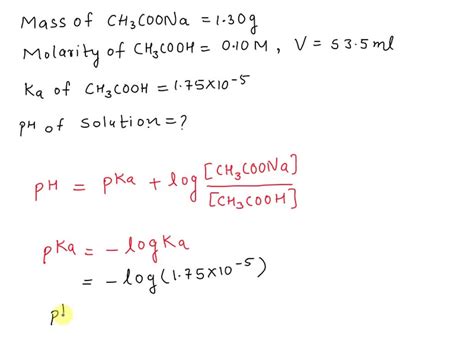 Mass of CH₃COONa = 1.30g
Molarity of CH₃COOH = 0.10M, V = 53.5ml
Ka of CH₃COOH = 1.75×10⁻⁵
pH of Solution = ?
pH = pKa + log [CH₃COONa] / [CH₃COOH]
pKa = - log Ka
= - log (1.75×10⁻⁵)